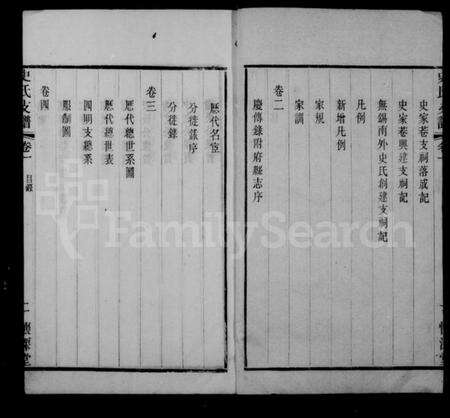 史家巷支祠落成記
史家巷興建支祠記
無錫南外史氏創建支祠記
凡例
新增凡例
家規
家訓
卷二
慶傳錄附府縣志序
歷代名宦
分徙錄序
分徙錄
卷三
歷代總世系圖
歷代總世表
四明支總系
服制圖
卷四
史氏支譜
卷一
目錄
二
懷源堂
FamilySearch